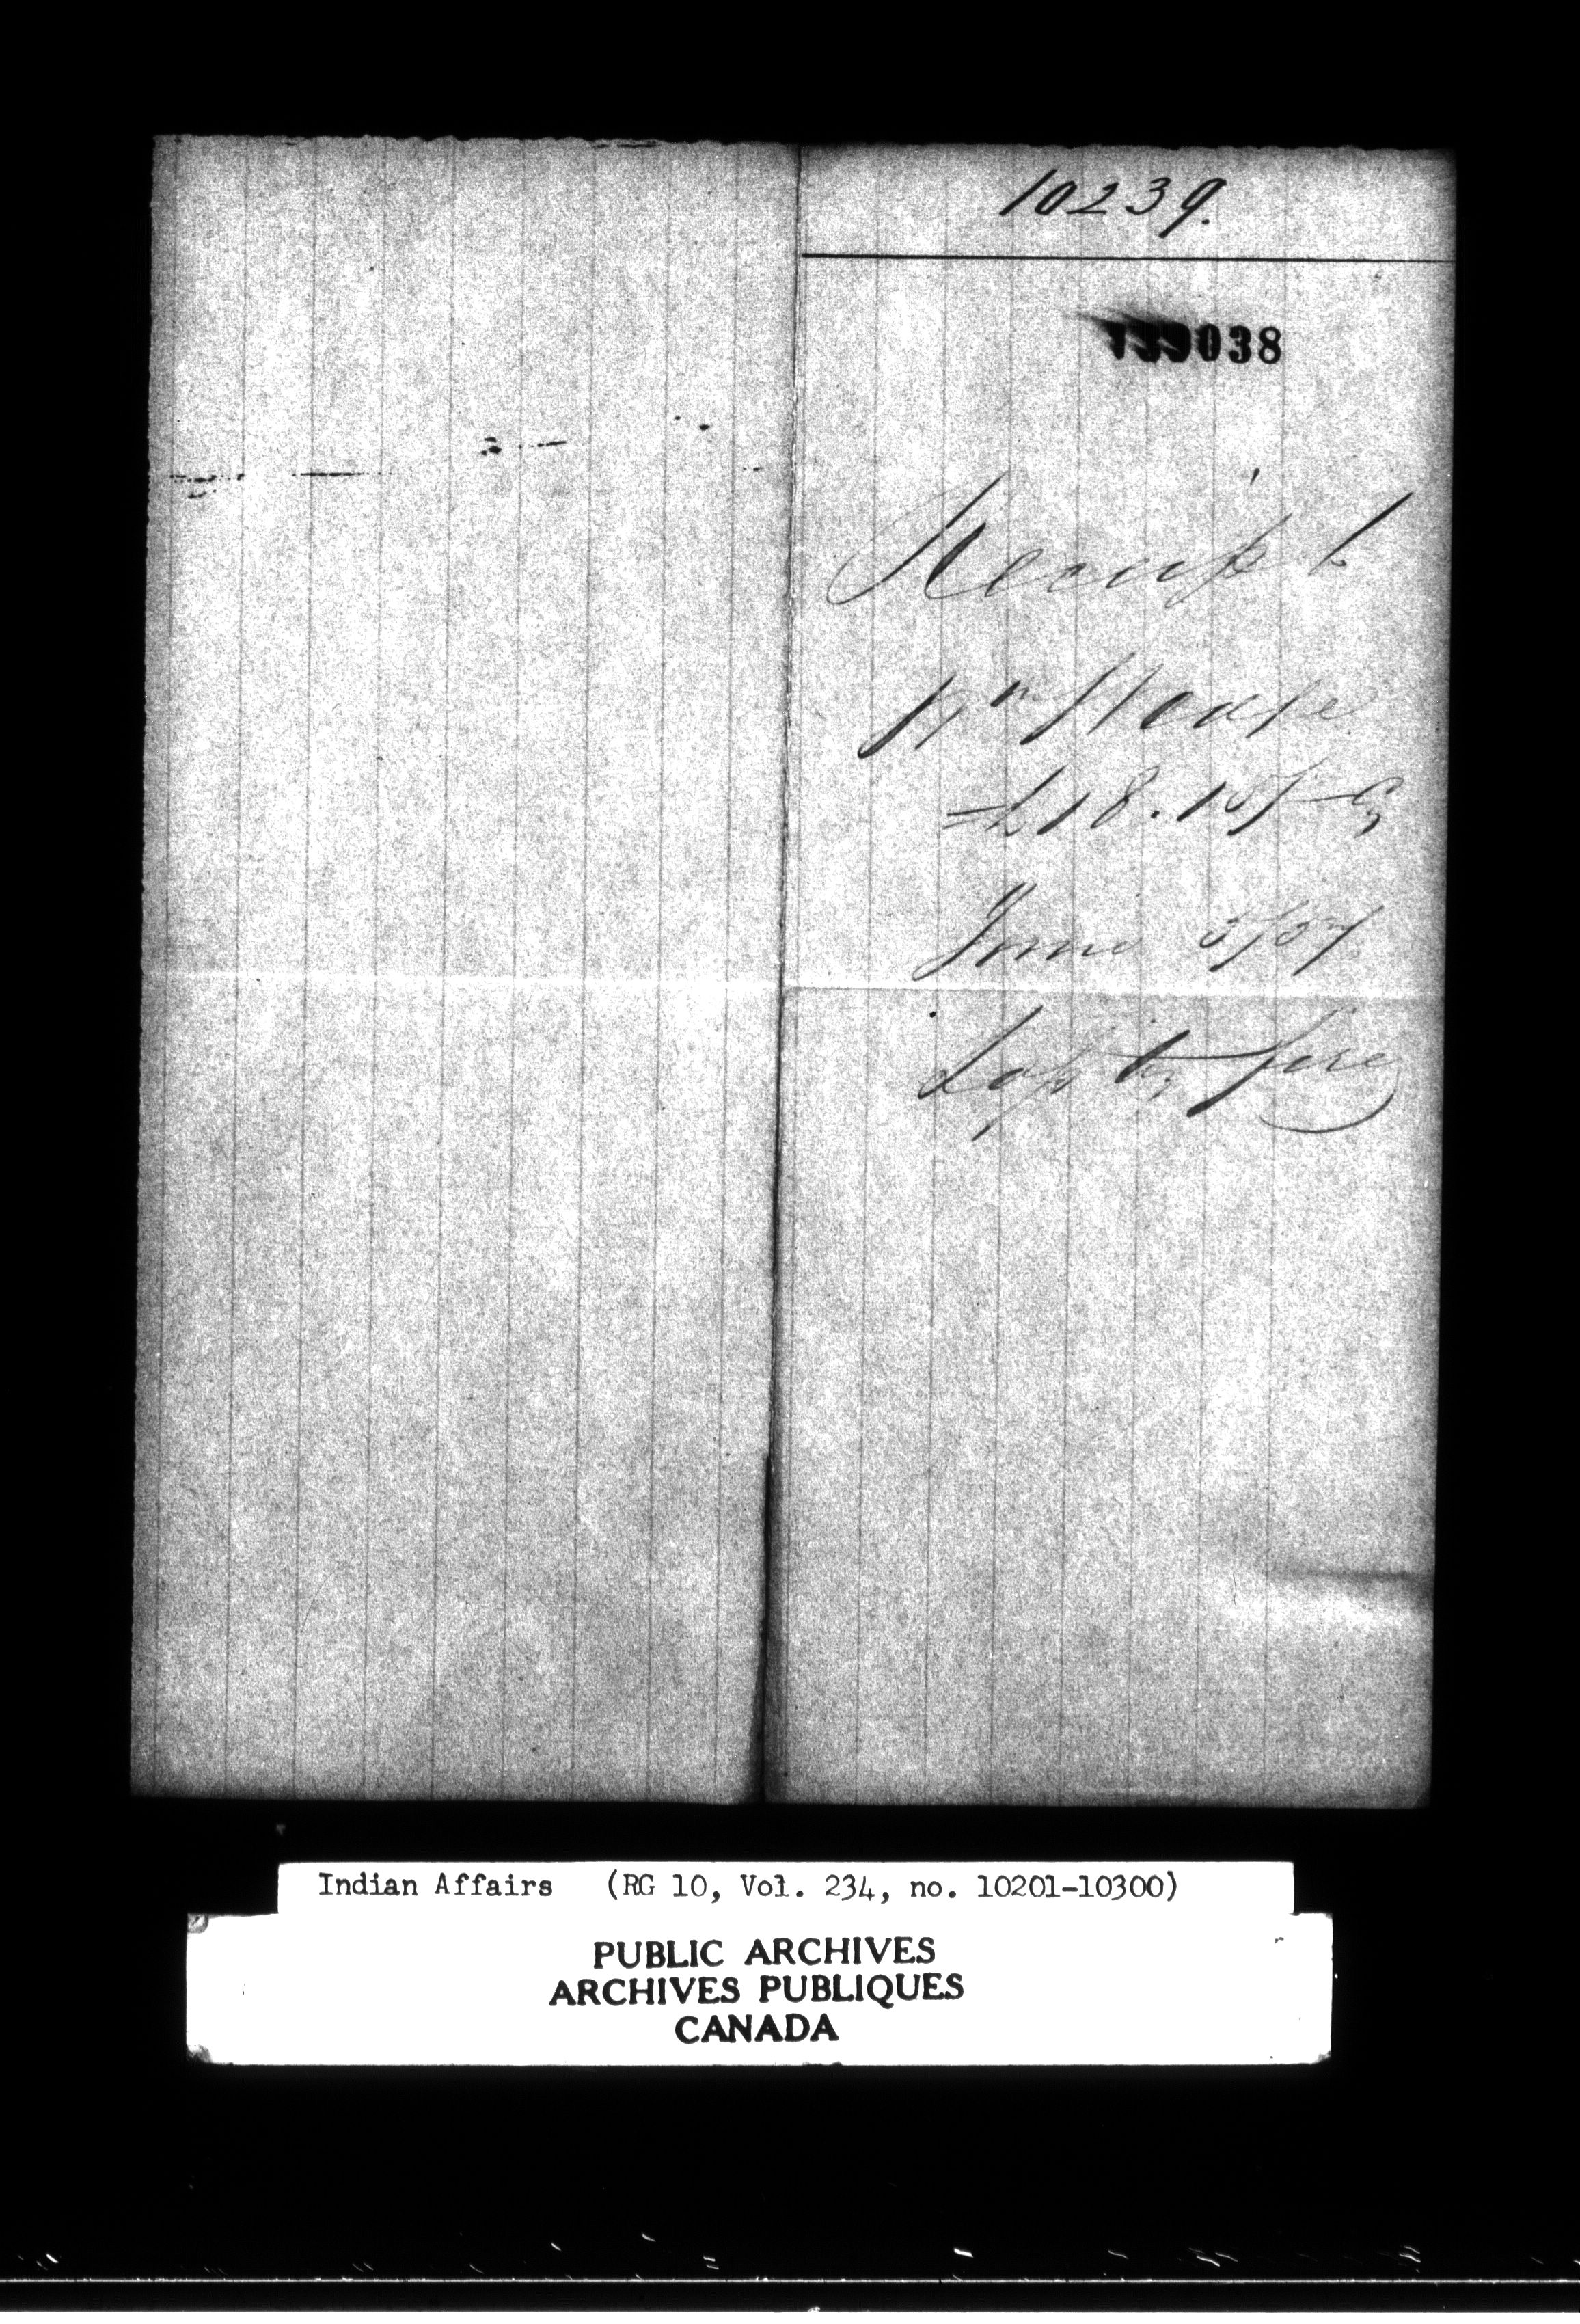 10239.
139038
Receipt
Wm
£18.15/ Cy
June 5/57
Loss by fire
Indian Affairs (RG 10, Vol. 234, no. 10201-10300)
PUBLIC ARCHIVES
ARCHIVES PUBLIQUES
CANADA